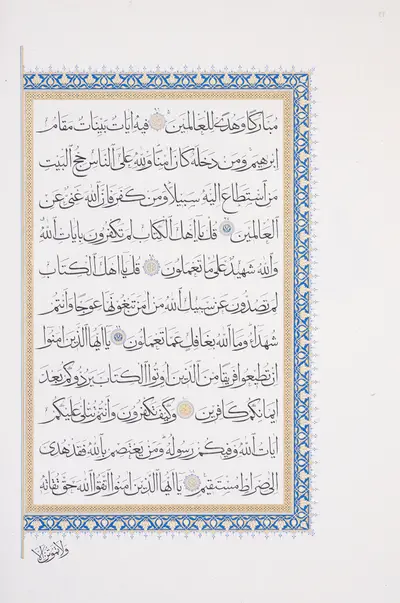 مباركا وهدى للعالمين فيه ايات بينات مقام
ابرهيم ومن دخله كان امنا ولله على الناس حج البيت
من استطاع اليه سبيلا ومن كفر فان الله غني عن
العالمين قل يا اهل الكتاب لم تكفرون بايات الله
والله شهيد على ما تعملون قل يا اهل الكتاب
لم تصدون عن سبيل الله من امن تبغونها عوجا وانتم
شهداء وما الله بغافل عما تعملون يا ايها الذين امنوا
ان تطيعوا فريقا من الذين اوتوا الكتاب يردوكم بعد
ايمانكم كافرين وكيف تكفرون وانتم تتلى عليكم
ايات الله وفيكم رسوله ومن يعتصم بالله فقد هدى
الى صراط مستقيم يا ايها الذين امنوا اتقوا الله حق تقاته
ولا تموتن الا